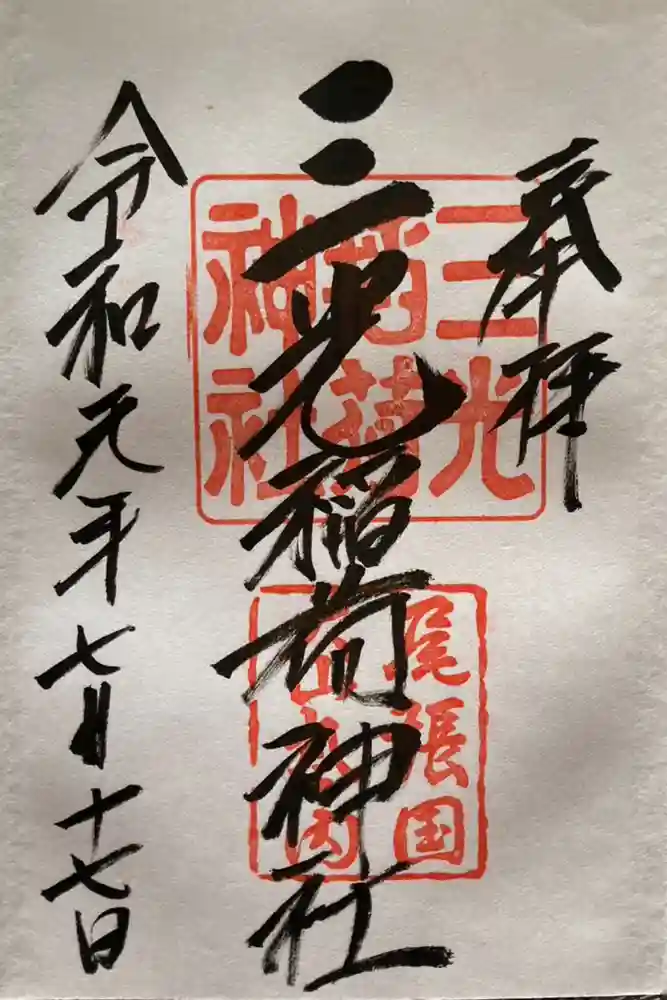 奉拝
三光稲荷神社
令和元年七月十七日
三光
稲荷
神社
尾張国
犬山城内